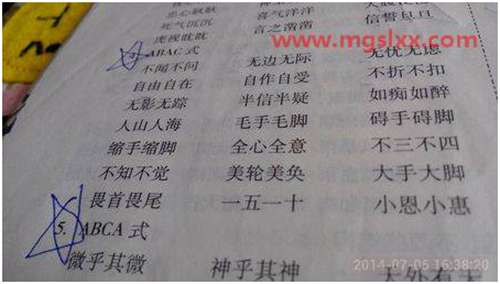 忠心耿耿 喜气洋洋
死气沉沉 言之凿凿 信誓旦旦
虎视眈眈
www.mgslxx.com
ABAC 式 无边无际 无忧无虑
不闻不问 自作自受 不折不扣
自由自在 半信半疑 如痴如醉
无影无踪 毛手毛脚 碍手碍脚
人山人海 全心全意 不三不四
缩手缩脚 美轮美奂 大手大脚
不知不觉 一五一十 小恩小惠
畏首畏尾
5. ABCA 式
微乎其微 神乎其神 天外有天
2014-07-05 16:38:20